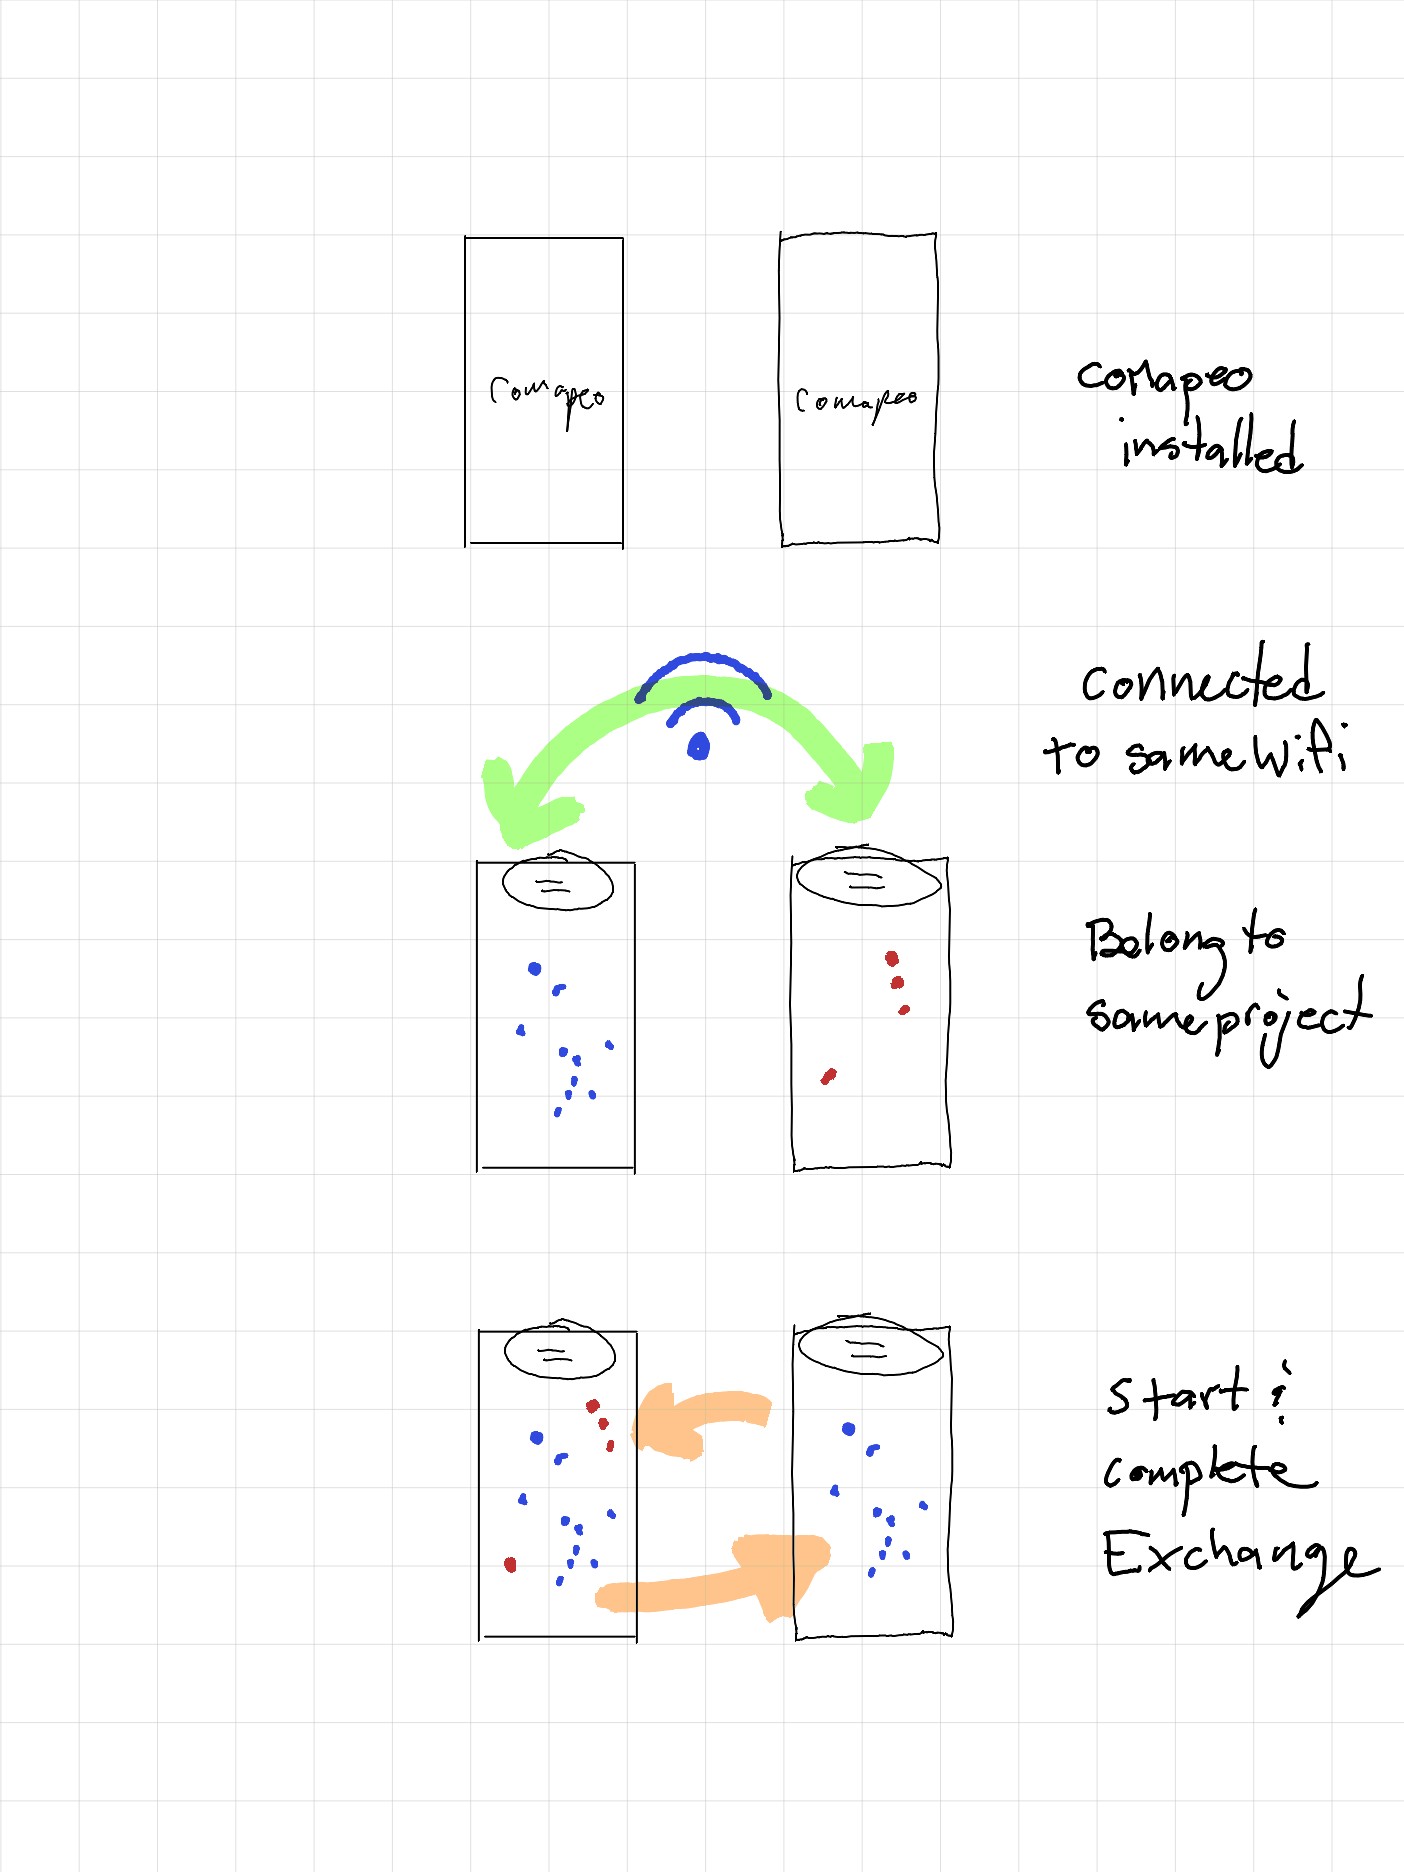 Comapeo
Comapeo
CoMapeo
installed
Connected
to same Wifi
Belong to
same project
Start &
complete
Exchange